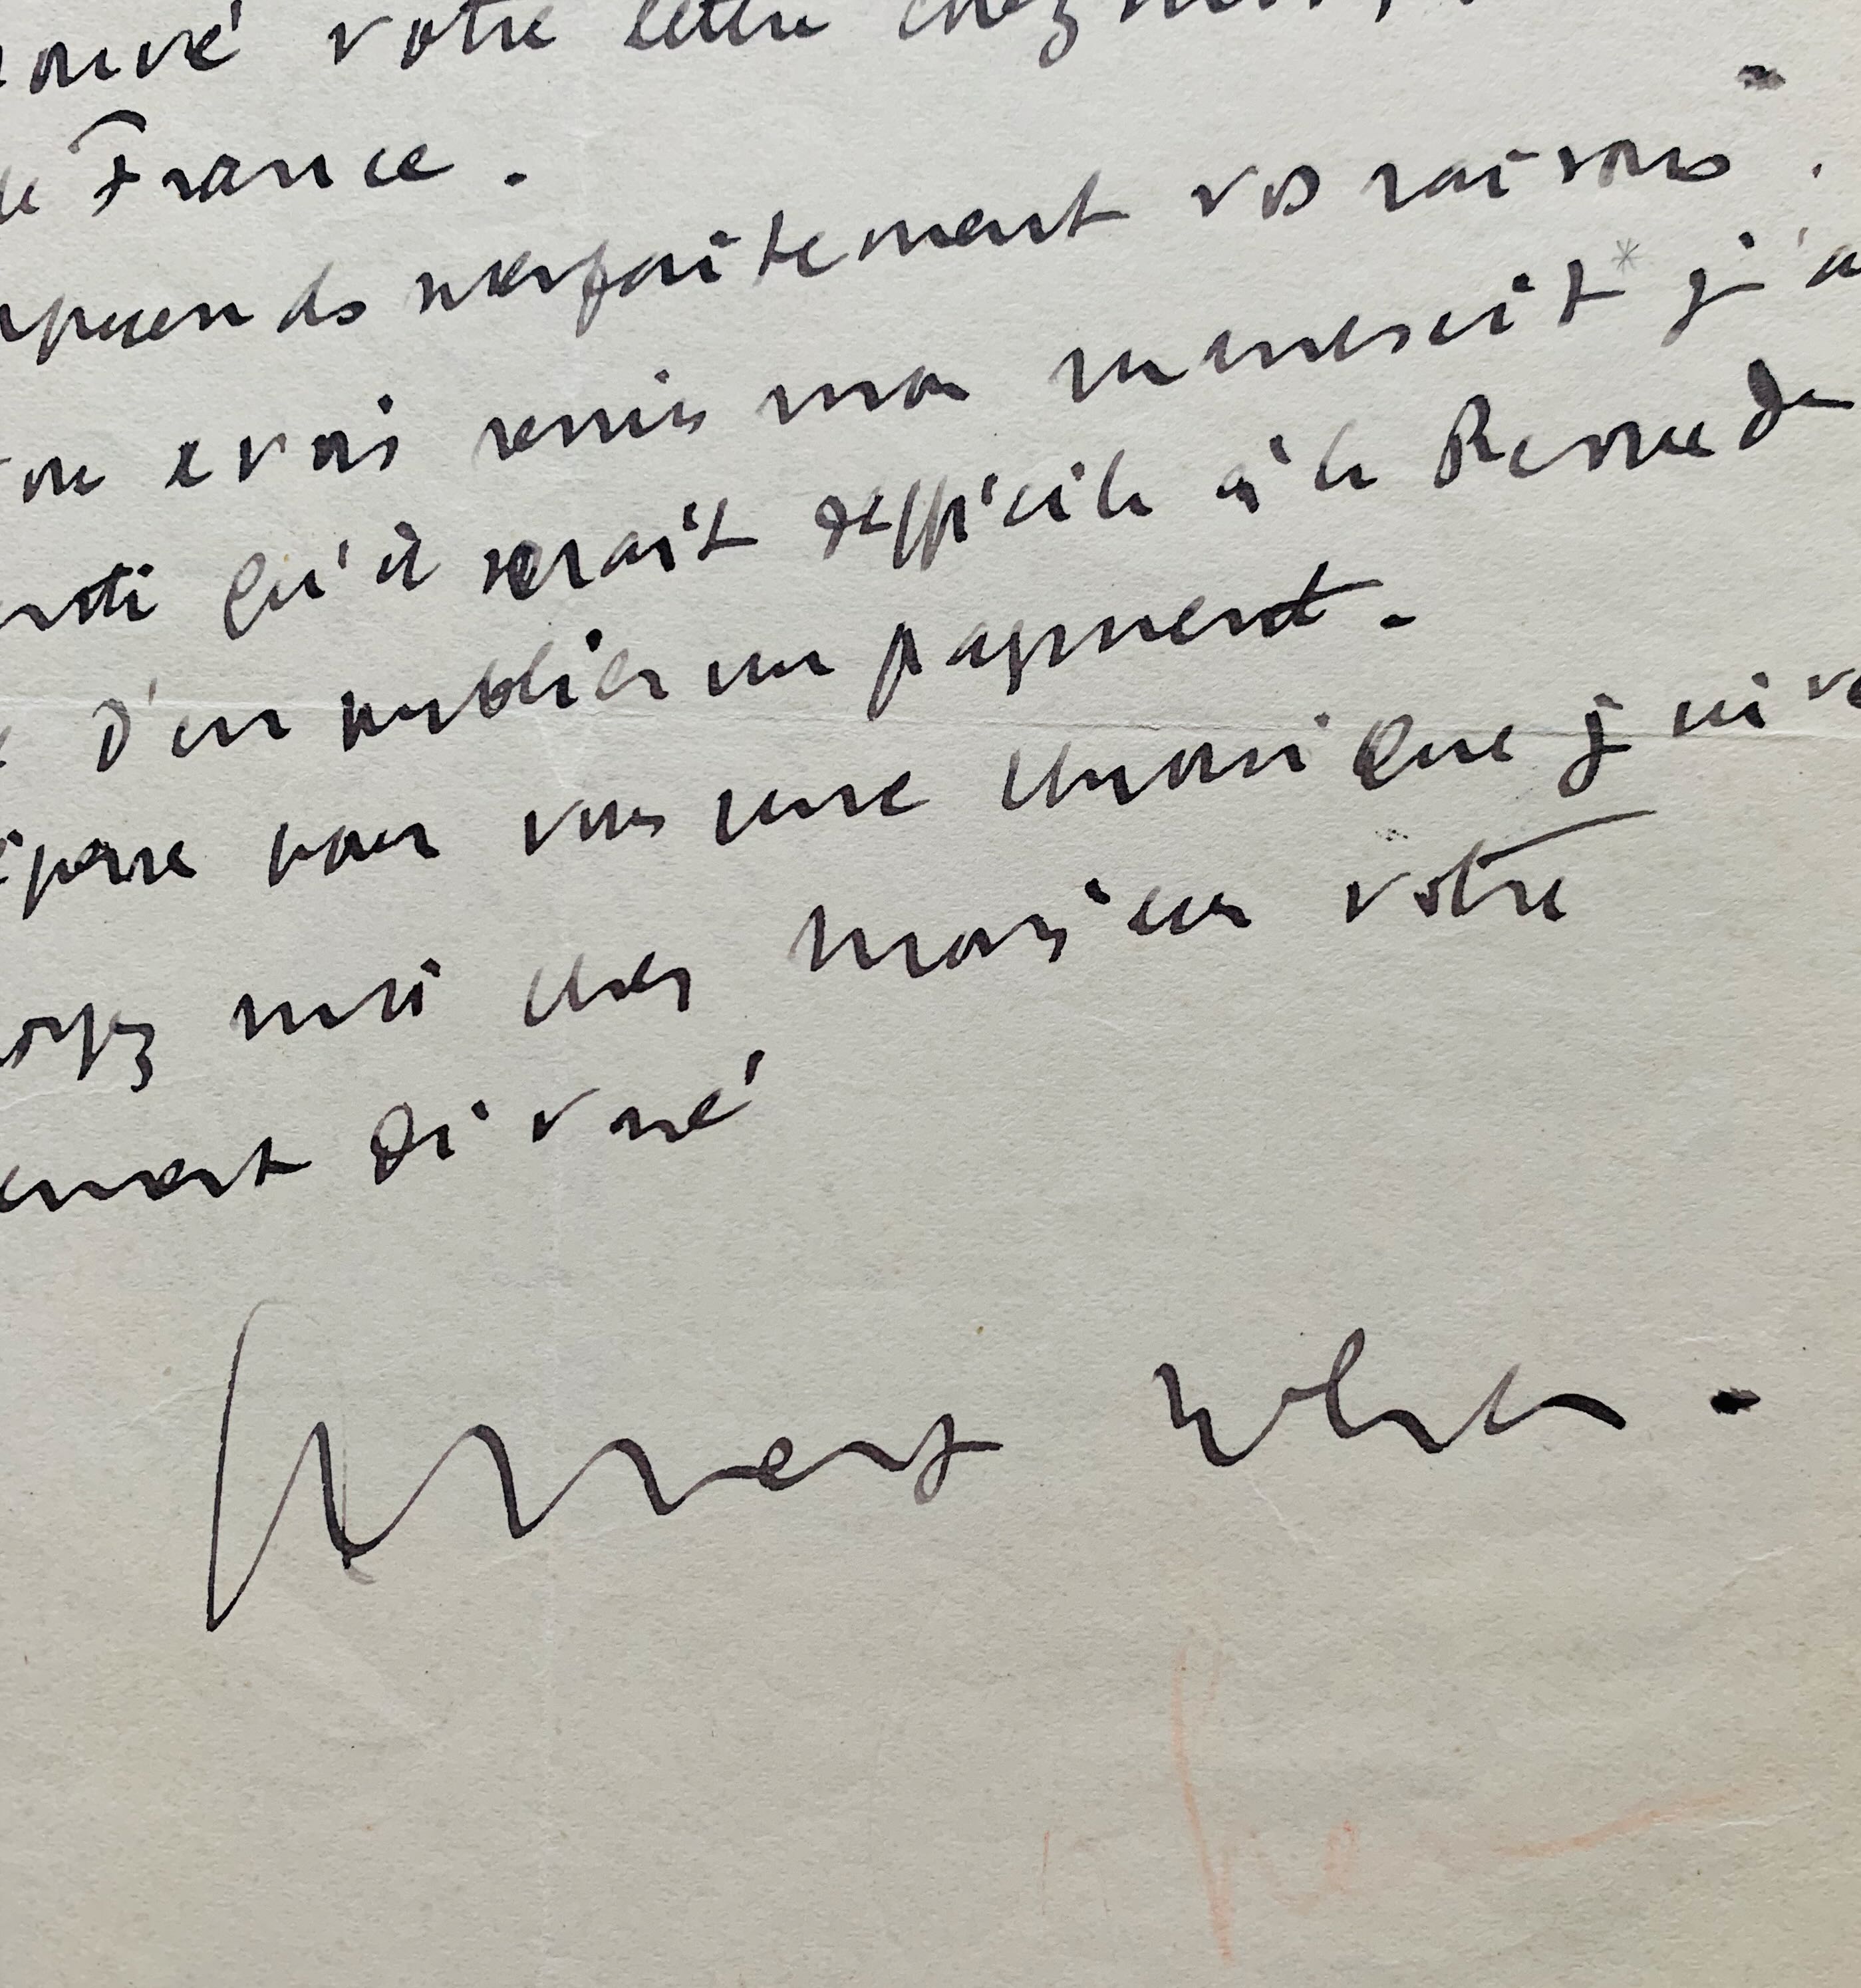 ouvé votre lettre chez moi,
de France.
mprends parfaitement vos raisons.
on avais remis mon manuscrit* j'a
enti qu'il serait difficile à la Revue de
d'en publier un fragment.
épare pour vous une chronique j
oyez moi cher Monsieur votre
ement dévoué
Albert